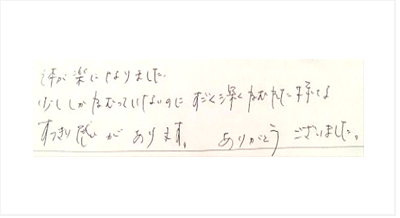 体が楽になりました。
少ししかねむっていないのにすごく深くねむれた様な
すっきり感があります。ありがとうございました。